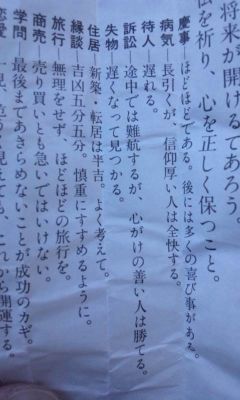 将来が開けるであろう。
を祈り、心を正しく保つこと。
慶事―ほどほどである。後には多くの喜び事がある。
病気―長引くが、信仰厚い人は全快する。
待人―遅れる。
訴訟―途中では難航するが、心がけの善い人は勝てる。
失物―遅くなって見つかる。
住居―新築・転居は半吉。よく考えて。
縁談―吉凶五分五分。慎重にすすめるように。
旅行―無理をせず、ほどほどの旅行を。
商売―売り買いとも急いではいけない。
学問―最後まであきらめないことが成功のカギ。
恋愛―一見、危うく見えても、これから開運する。